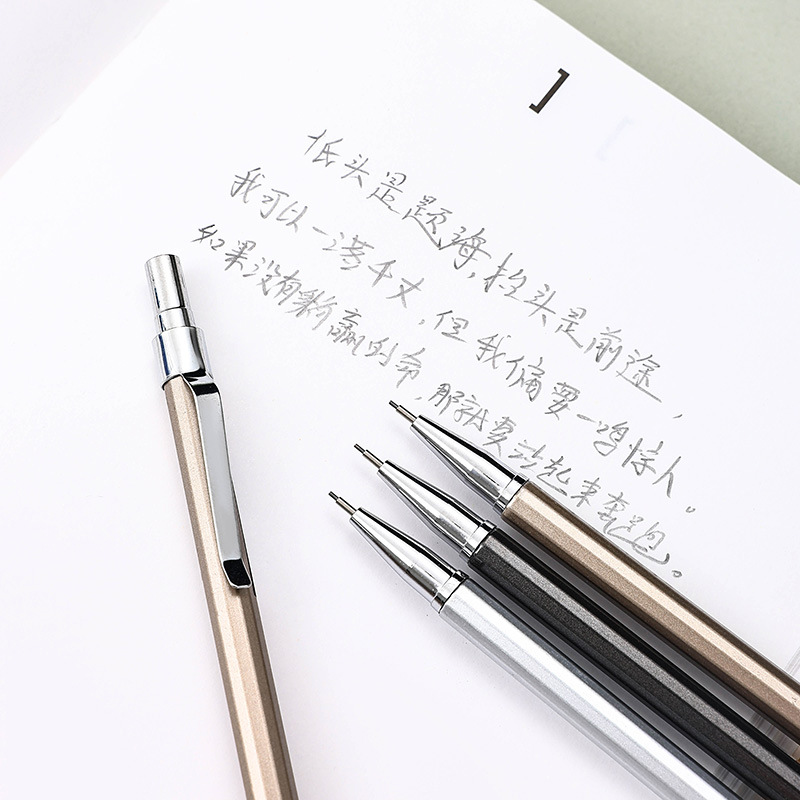 ]
低头是题海,抬头是前途,
我可以一落千丈,但我偏要一鸣惊人。
如果没有躺赢的命,那就要站起来奔跑。